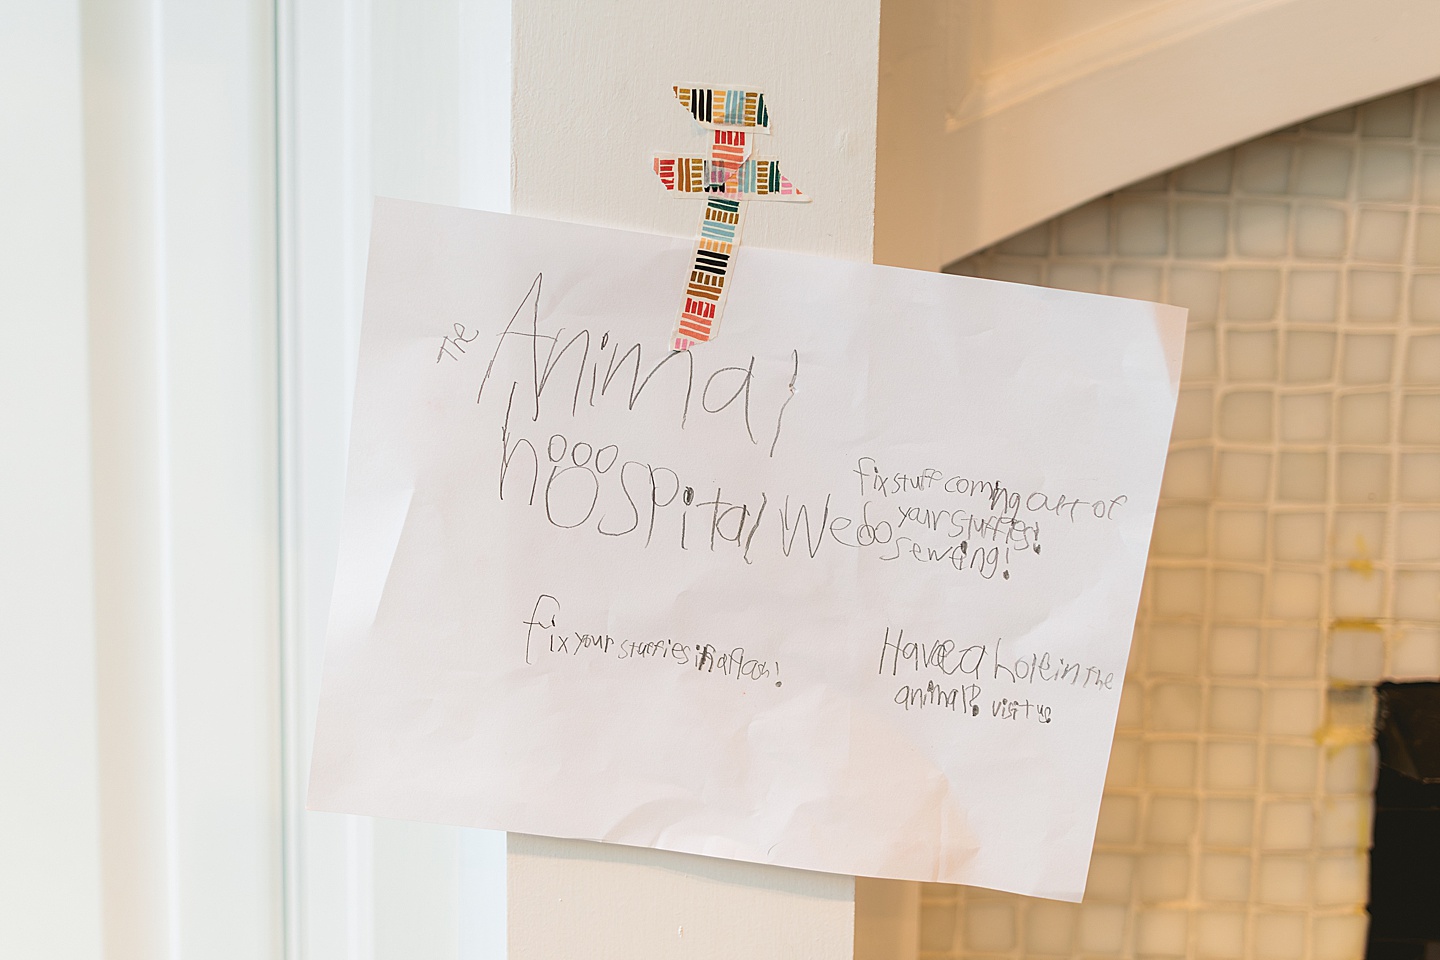 The Animal
hospital We do
sewing!
fix stuff coming out of
your stuffies!
fix your stuffies in a flash!
Have a hole in the
animal? visit us